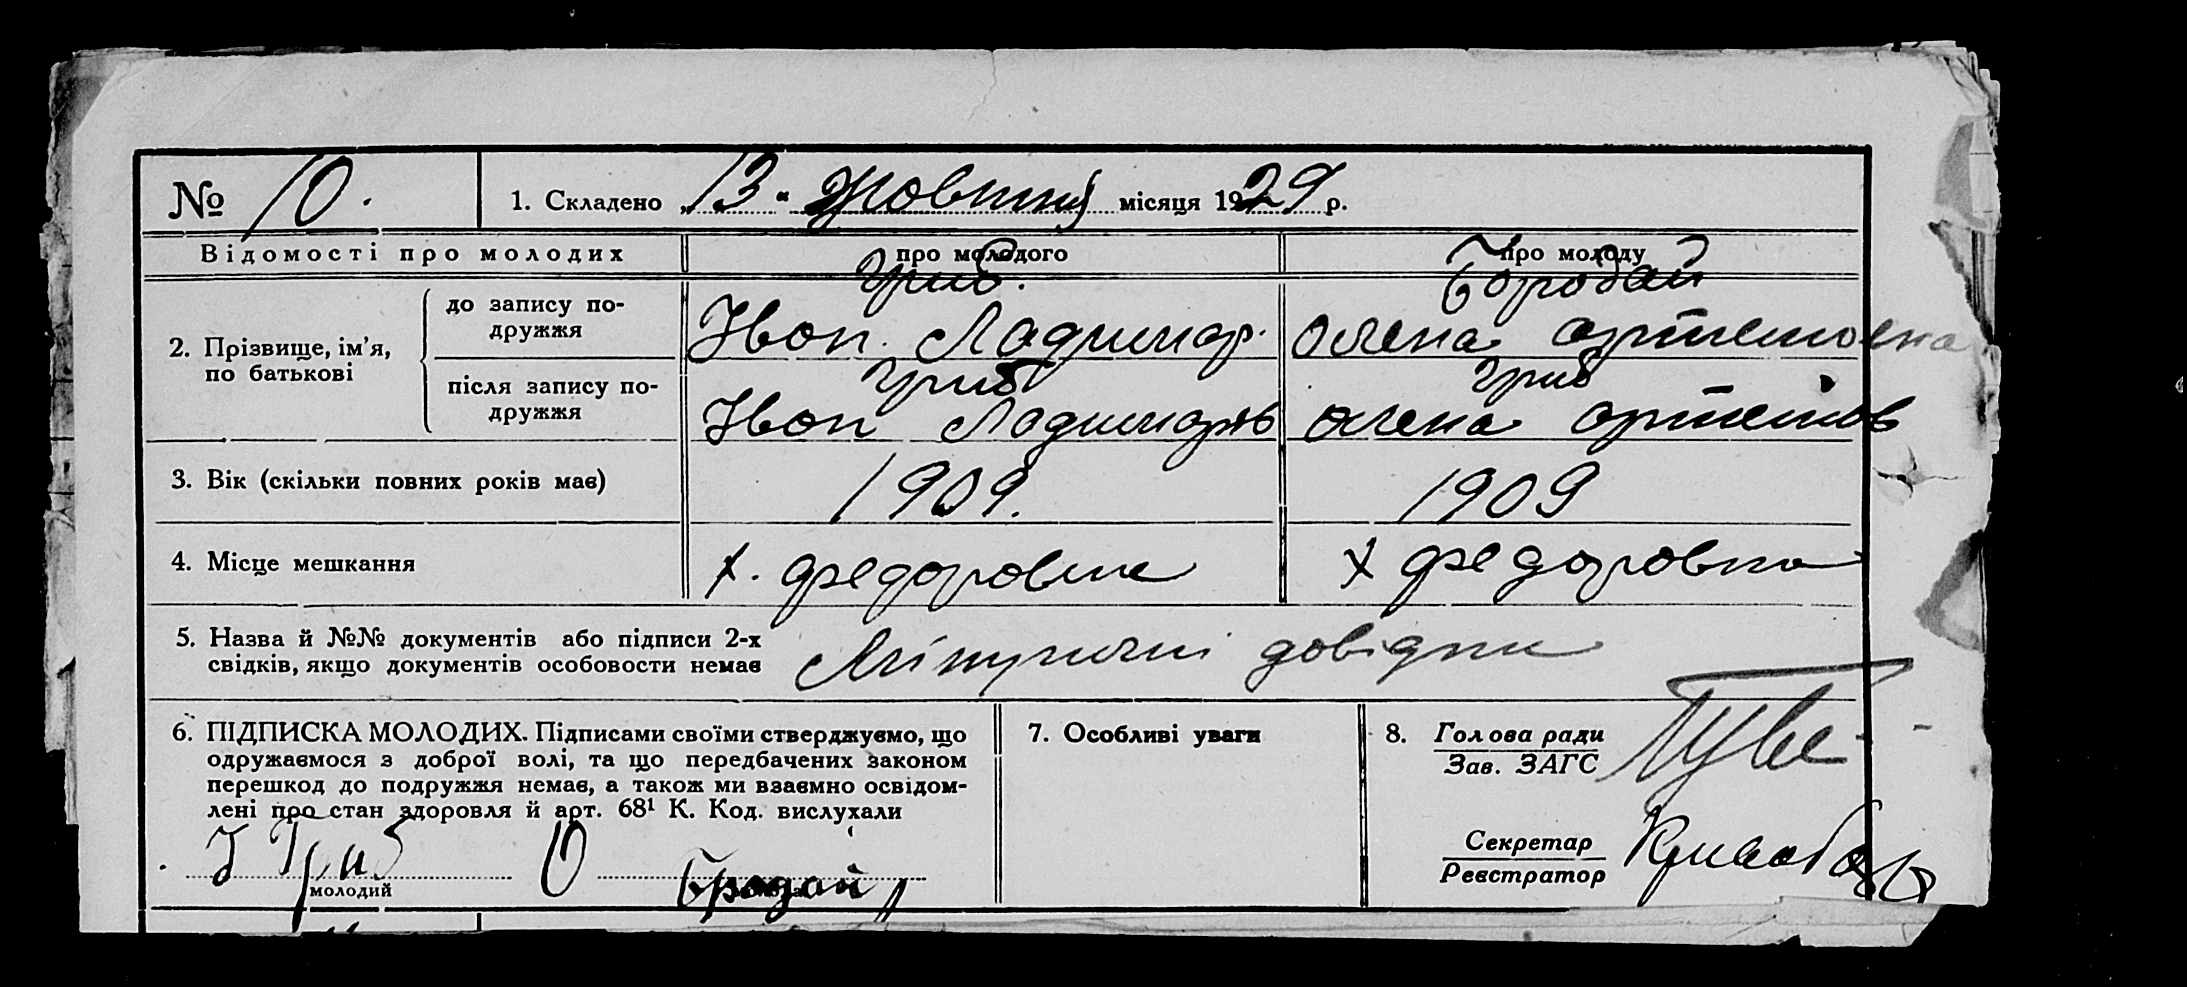 № 10. 1. Складено „13" жовтня місяця 1929 р.
Відомості про молодих про молодого про молоду
2. Прізвище, ім'я, по батькові
до запису по-
дружжя
Гриб. Бородай
Іван. Ладимар. Олена Артемовна
після запису по-
дружжя
Гриб Гриб
Іван Ладимарів Олена Артемів
3. Вік (скільки повних років має) 1909. 1909
4. Місце мешкання х. Федоровка х Федоровка
5. Назва й №№ документів або підписи 2-х
свідків, якщо документів особовости немає
довідки
6. ПІДПИСКА МОЛОДИХ. Підписами своїми стверджуємо, що
одружаємося з доброї волі, та що передбачених законом
перешкод до подружжя немає, а також ми взаємно освідом-
лені про стан здоровля й арт. 68¹ К. Код. вислухали
І Гриб О Бродай
молодий
7. Особливі уваги
8. Голова ради
Зав. ЗАГС
Секретар
Реєстратор